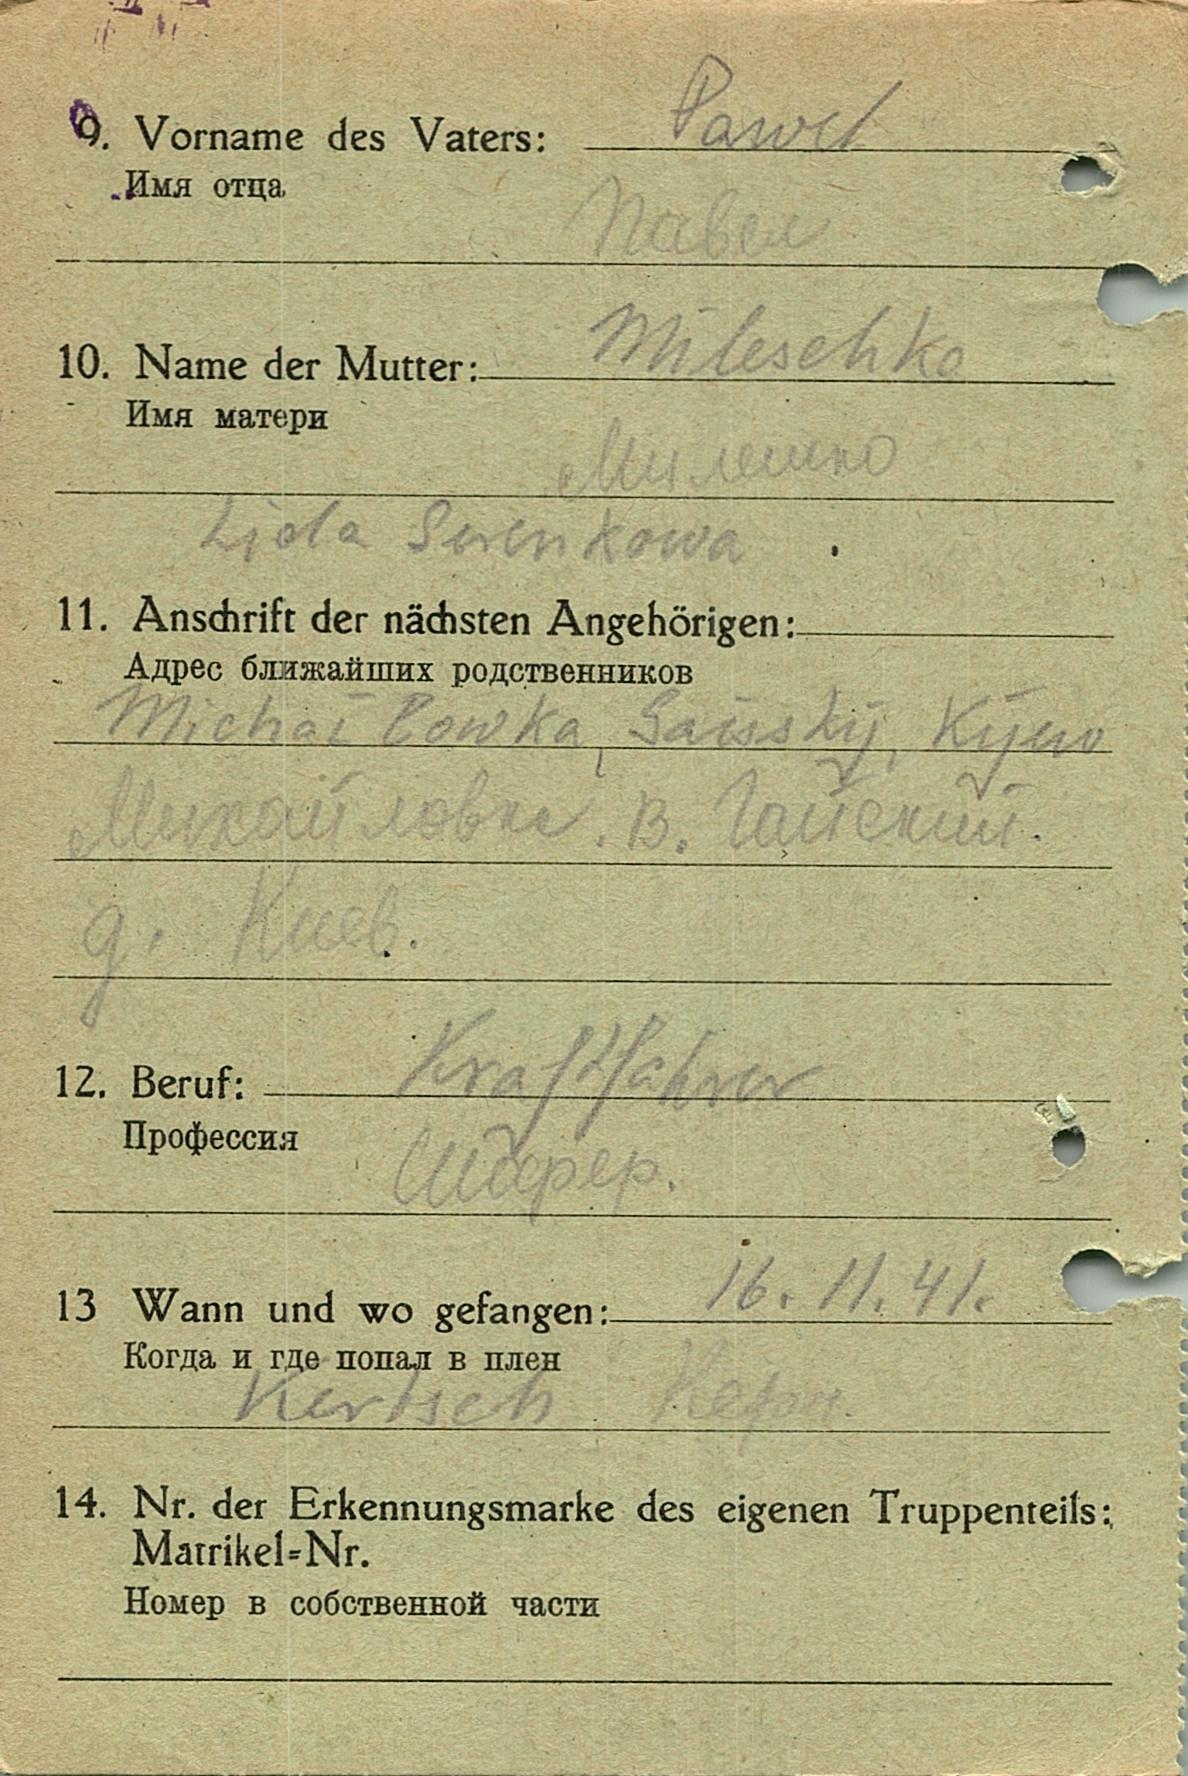 9. Vorname des Vaters: Pawel
Имя отца
Павел
10. Name der Mutter: Mileschko
Имя матери
Милешко
Lida Serenkowa
11. Anschrift der nächsten Angehörigen:
Адрес ближайших родственников
Michailowka, Gaisskij,
Михайловка. В. Гайский.
g. Киев.
12. Beruf: Kraftfahrer
Профессия
Шофер.
13 Wann und wo gefangen: 16.11.41.
Когда и где попал в плен
Kertsch
14. Nr. der Erkennungsmarke des eigenen Truppenteils:
Matrikel=Nr.
Номер в собственной части